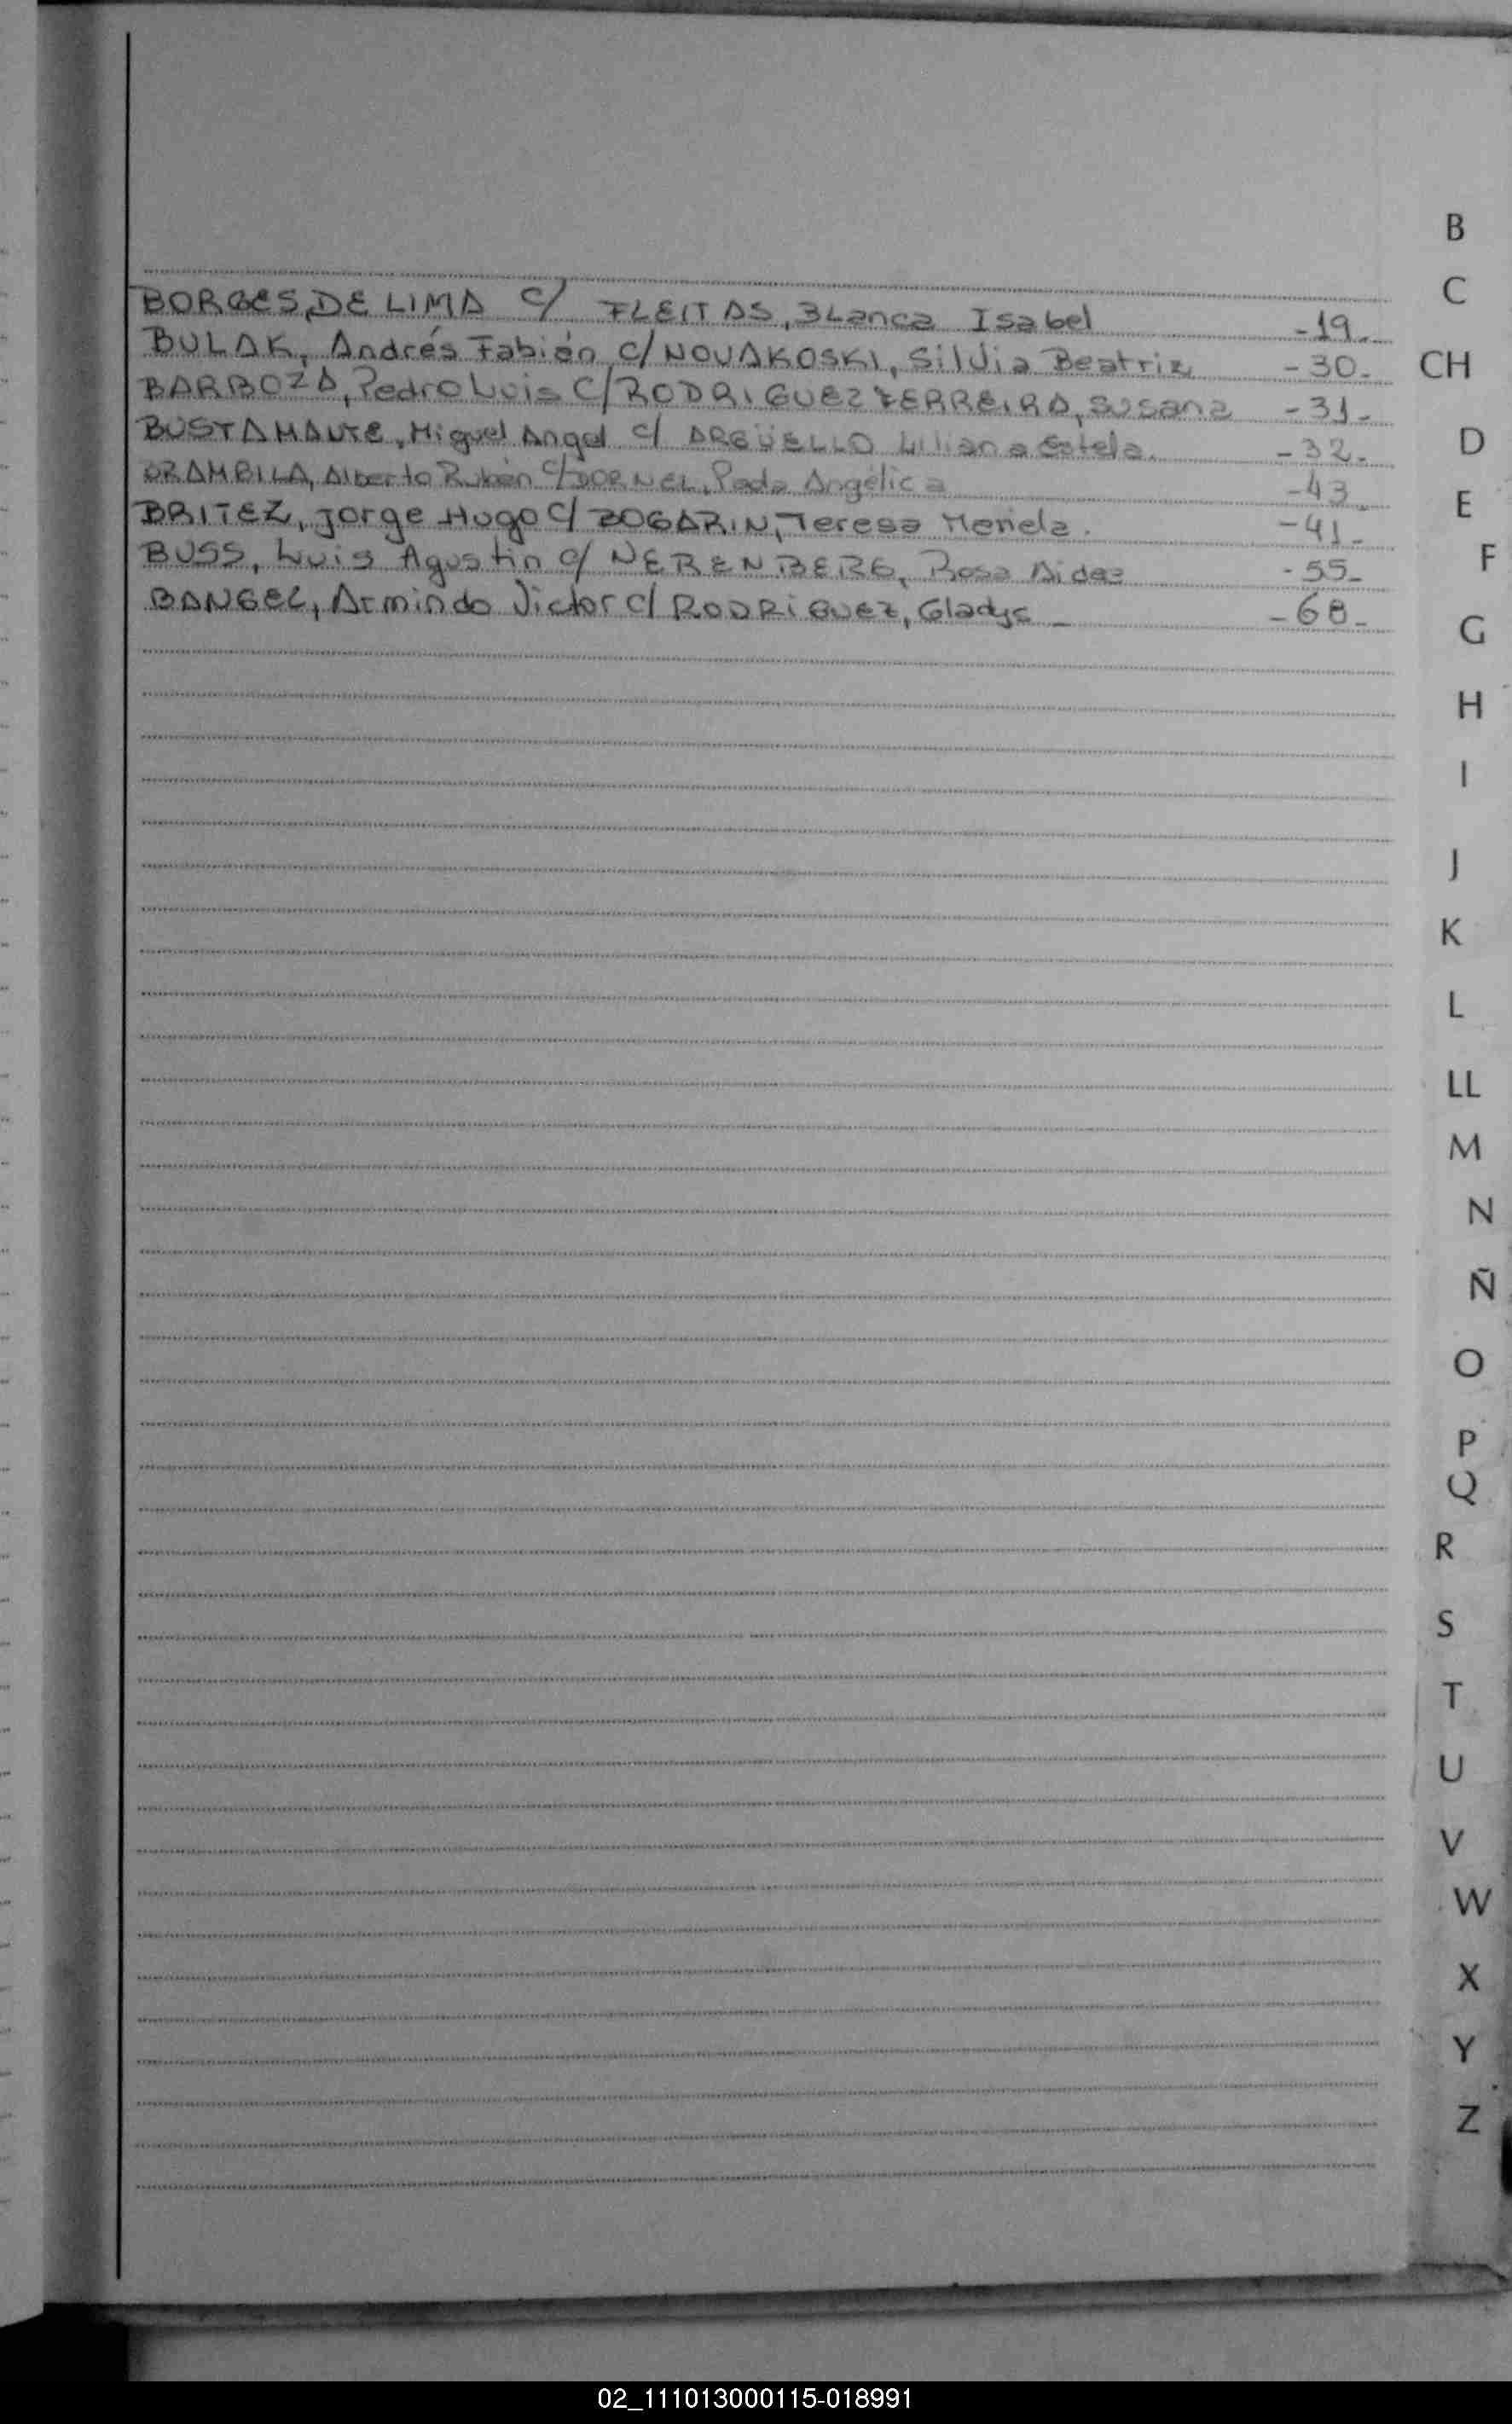 BORGES, DE LIMA C/ FLEITAS, BLanca Isabel -19-
BULAK, Andrés Fabián C/ NOVAKOSKI, Silvia Beatriz -30-
BARBOZA, Pedro Luis C/ RODRIGUEZ FERREIRA, Susana -31-
BUSTAMANTE, Miguel Angel C/ ARGÜELLO Liliana Estela. -32-
BRAMBILA, Alberto Rubén C/ DORNEL, Angélica -43-
BRITEZ, Jorge Hugo C/ BOGARIN, Teresa Mariela. -41-
BUSS, Luis Agustin C/ NERENBERG, Rosa Aidee -55-
BANGEL, Armindo Victor C/ RODRIGUEZ, Gladys - -68-
B
C
CH
D
E
F
G
H
I
J
K
L
LL
M
N
Ñ
O
P
Q
R
S
T
U
V
W
X
Y
Z
02_111013000115-018991